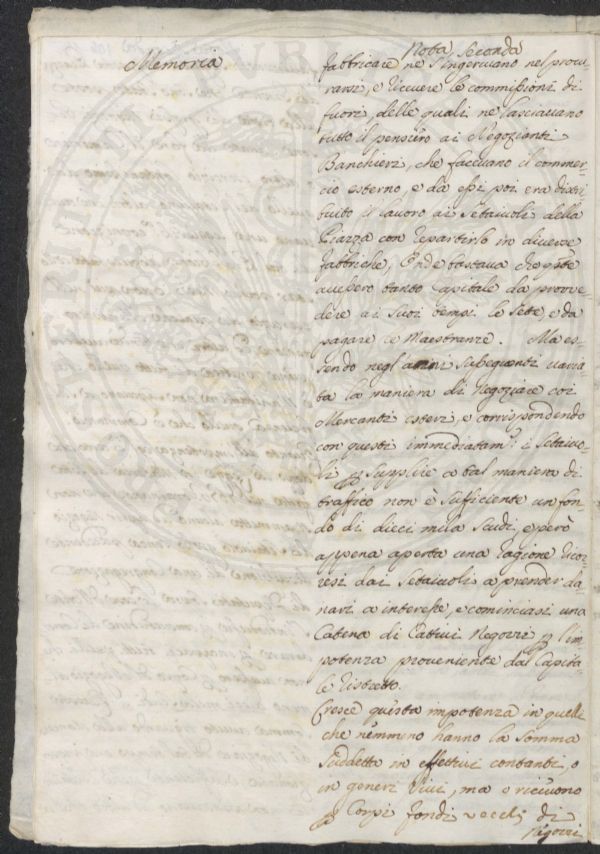 Memoria
Nota Seconda
fabbricare ne s'ingerivano nel procu
rarsi, e ricevere le commissioni di
fuori, delle quali ne lasciavano
tutto il pensiero ai Negozianti
Banchieri, che facevano il commer
cio esterno, e da essi poi era distri
buito il lavoro ai Setaiuoli della
Piazza con repartirlo in diverse
fabbriche, Onde bastava che
avessero tanto Capitale da prove
dere ai suoi tempi le Sete, e da
pagare le Maestranze. Ma es
sendo negl'anni subequenti varia
ta la maniera di Negoziare coi
Mercanti esteri, e corrispondendo
con questi immediatam:te i Setaiuo
li p supplire a tal maniera di
traffico non è sufficiente un fon
do di dieci mila Scudi, e però
appena aperta una ragione ricor
resi dai Setaiuoli a prender da
nari a interesse, e cominciasi una
Catena di Cattivi Negozzi p l'im
potenza proveniente dal Capita
le ristretto.
Cresce questa impotenza in quelli
che nemmeno hanno la Somma
Suddetta in effettivi contanti, o
in generi vivi, ma o ricevono
p Corpi fondi vecchi di
Negozzi